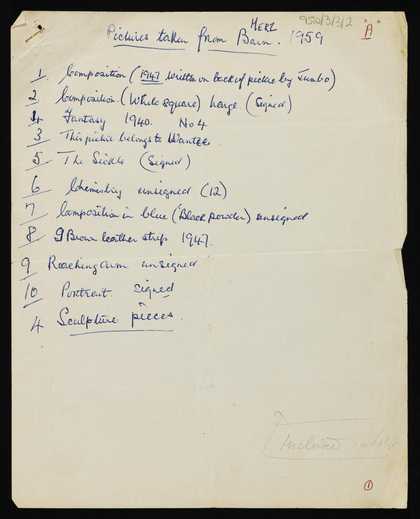 950/3/3/2
"B"
Pictures taken from MERZ Barn. 1959
1 Composition (1947 written on back of picture by Jumbo)
2 Composition (White square) Large (Signed)
4 Fantasy 1940. No 4
3 This picture belongs to Wantee.
5 The Sickle (Signed)
6 Chemistry unsigned (12)
7 Composition in blue (Black powder) unsigned
8 9 Brown leather strips 1947.
9 Reaching arm unsigned
10 Portrait. signed
4 Sculpture pieces.
1